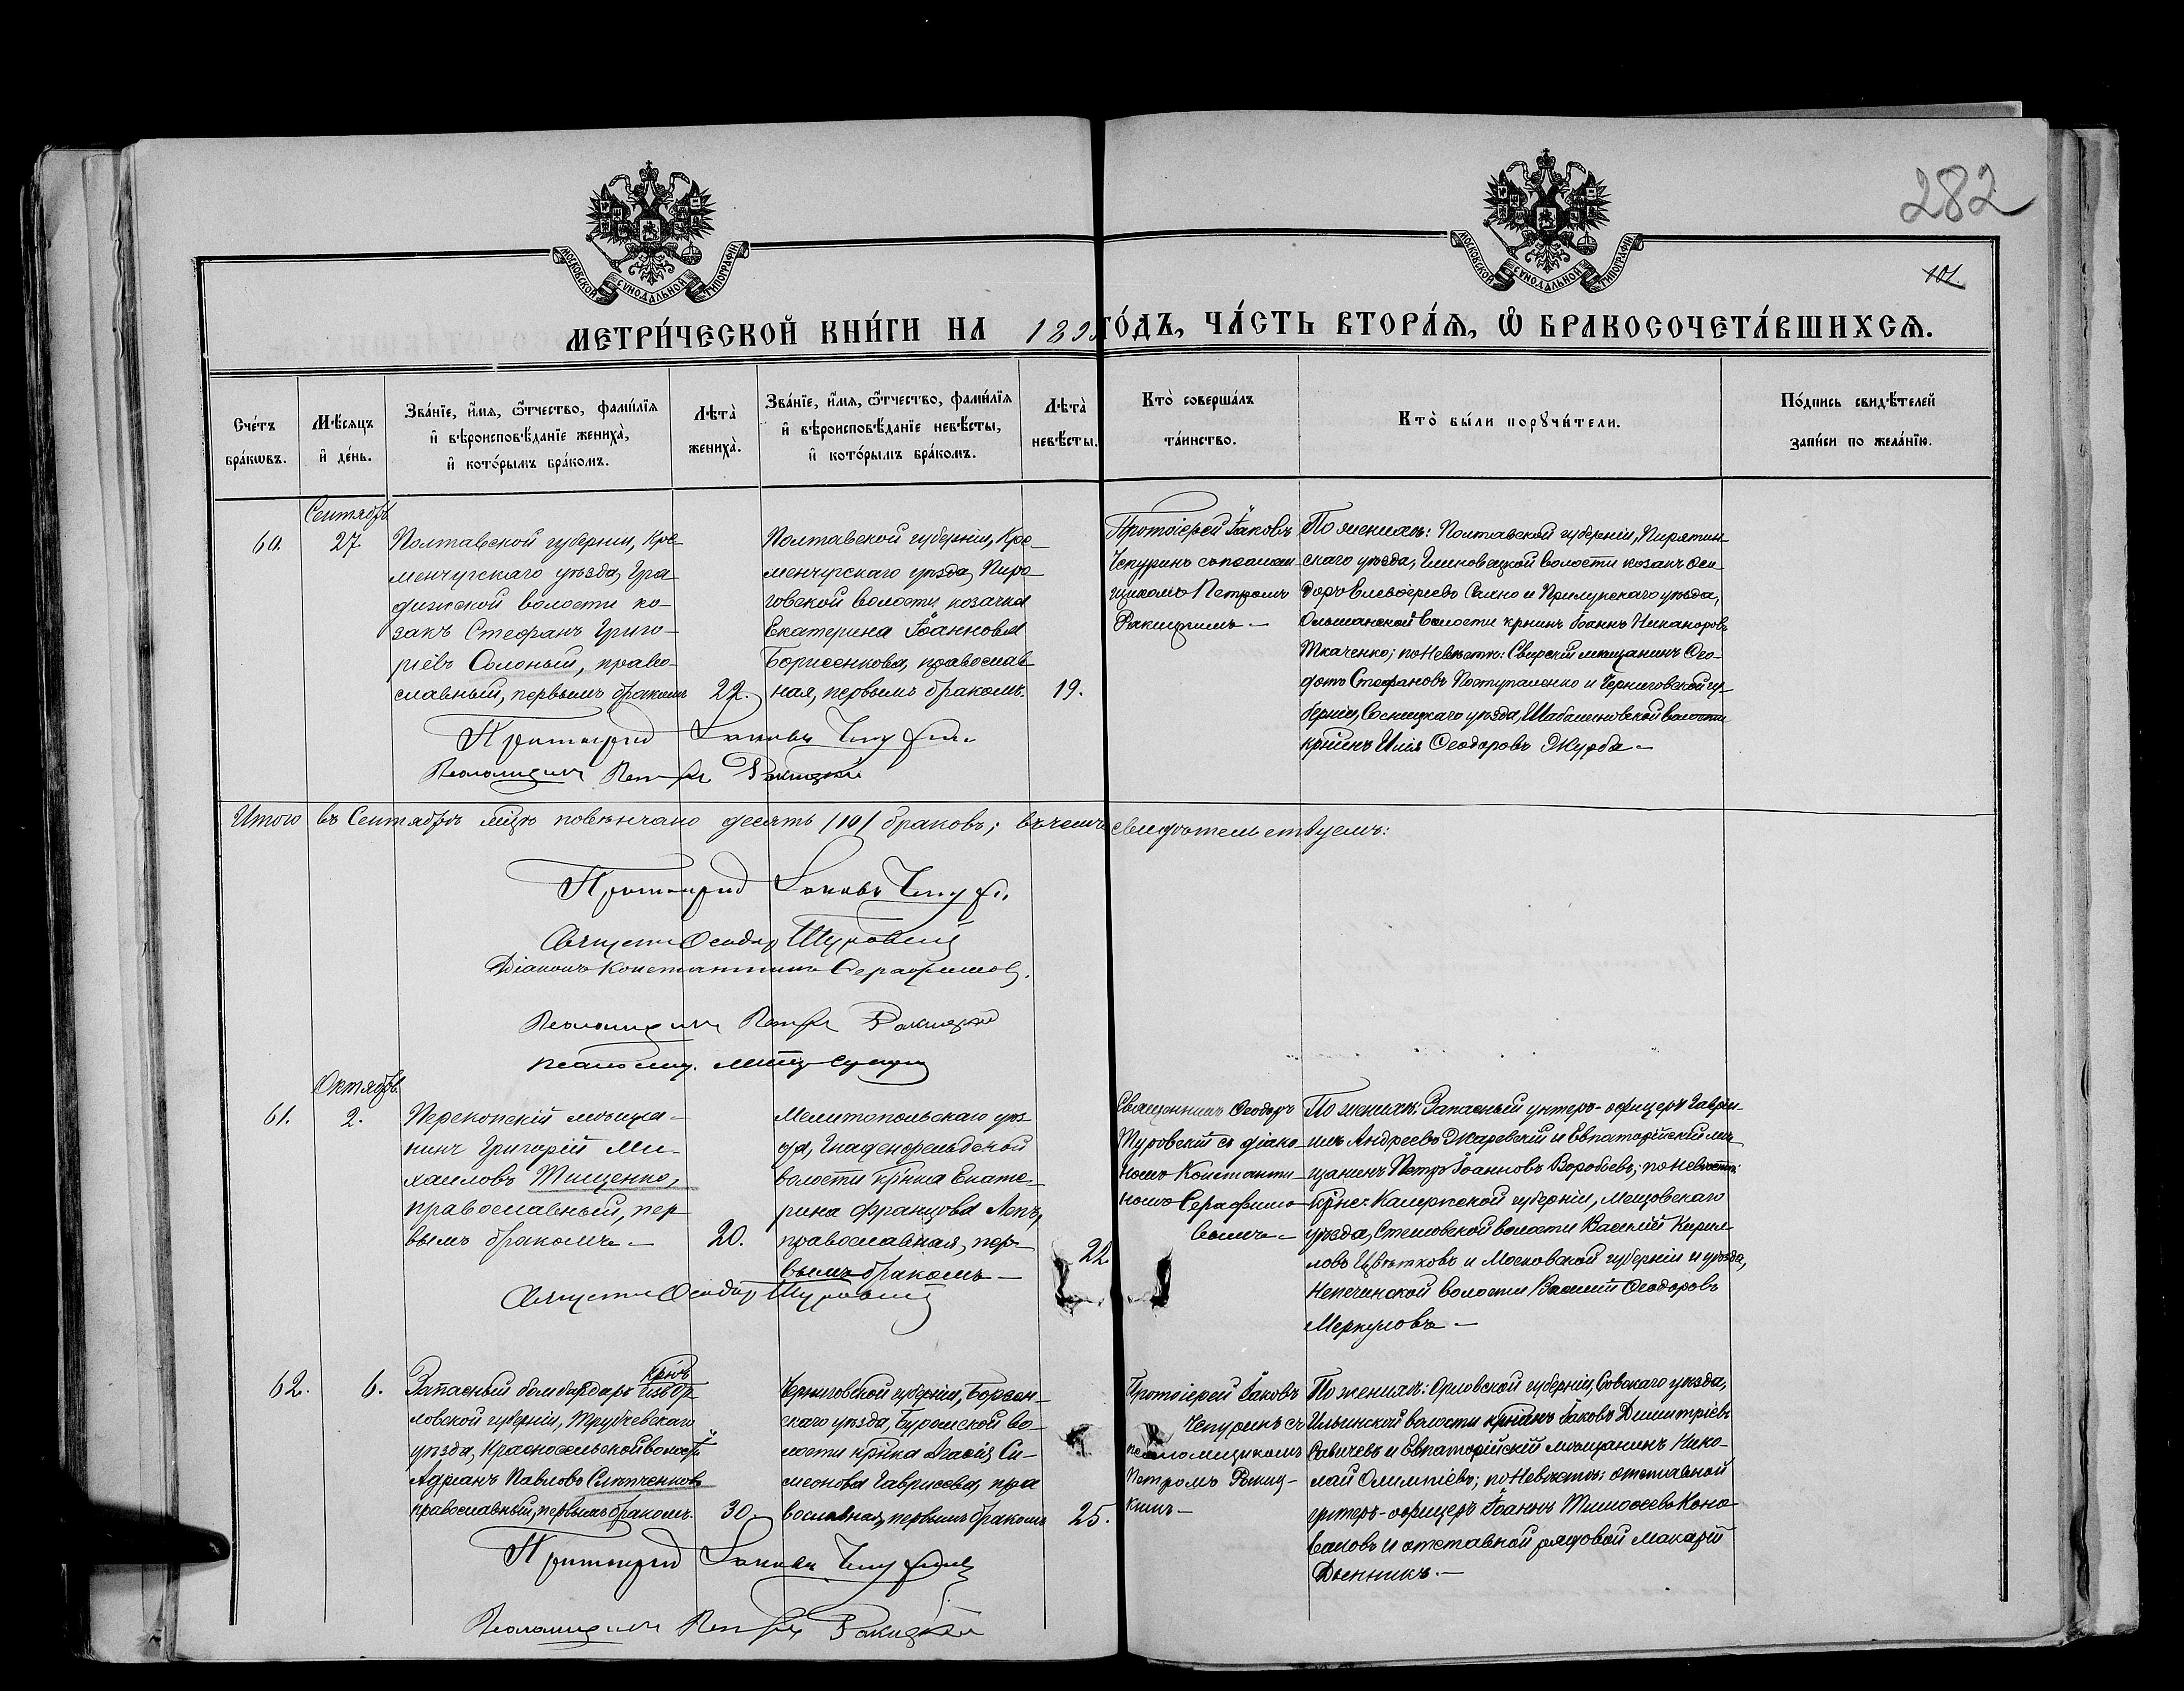 282
101.
МОСКОВСКОЙ СѴНОДАЛЬНОЙ ТИПОГРАФІИ
МОСКОВСКОЙ СѴНОДАЛЬНОЙ ТИПОГРАФІИ
МЕТРИ́ЧЕСКОЙ КНИ́ГИ НА 189 ГО́ДЪ, ЧА́СТЬ ВТОРА́Ѧ, Ѽ БРАКОСОЧЕТА́ВШИХСѦ.
Сче́тъ бра́кѡвъ.
Мѣ́сяцъ и҆ де́нь.
Зва́нїе, и҆́мѧ, ѻ҆́тчество, фами́лїѧ и҆ вѣроисповѣ́данїе жениха̀, и҆ кото́рымъ бра́комъ.
Лѣта̀ жениха̀.
Зва́нїе, и҆́мѧ, ѻ҆́тчество, фами́лїѧ и҆ вѣроисповѣ́данїе невѣ́сты, и҆ кото́рымъ бра́комъ.
Лѣта̀ невѣ́сты.
Кто̀ соверша́лъ та́инство.
Кто̀ бы́ли порꙋчи́тели.
По́дпись свидѣ́телей за́писи по жела́нїю.
Сентябрь
60.
27.
Полтавской губерніи, Кре-
менчугскаго уѣзда, Гра-
дижской волости ко-
закъ Стефанъ Григо-
ріевъ Солоный, право-
славный, первымъ бракомъ
22.
Полтавской губерніи, Кре-
менчугскаго уѣзда, Пиро-
говской волости козачка
Екатерина Іоаннова
Борисенкова, православ-
ная, первымъ бракомъ.
19.
Протоіерей Іаковъ
Чепуринъ съ псалом-
щикомъ Петромъ
Ракицкимъ
По женихѣ: Полтавской губерніи, Пирятин-
скаго уѣзда, козакъ Иси-
доръ Елевѳеріевъ и Прилукскаго уѣзда,
Ольшанской волости крнинъ Іоаннъ Никаноровъ
Ткаченко; по невѣстѣ: мѣщанинъ Ѳео-
дотъ Стефановъ Поступаленко и Черниговской гу-
берніи, Сосницкаго уѣзда, Шабалиновской волости
крнинъ Илія Ѳеодоровъ Журба
Протоіерей Іаковъ Чепуринъ
Псаломщикъ Петръ Ракицкій
Итого въ Сентябрѣ мцѣ повѣнчано десять /10/ браковъ; въ чемъ свидѣтельствуемъ:
Протоіерей Іаковъ Чепуринъ
Священникъ Ѳеодоръ Туровскій
Діаконъ Константинъ Серафимовъ.
Псаломщикъ Петръ Ракицкій
Октябрь
61.
2.
Перекопскій мѣща-
нинъ Григорій Ми-
хаиловъ Тищенко,
православный, пер-
вымъ бракомъ
20.
Мелитопольскаго уѣз-
да, Гнаденфельдской
волости крнка Екате-
рина Францова Лепъ,
православная, пер-
вымъ бракомъ
22
Священникъ Ѳеодоръ
Туровскій съ діако-
номъ Константи-
номъ Серафимо-
вымъ
По женихѣ: Запасный унтеръ-офицеръ Гаврі-
илъ Андреевъ Жаревскій и Евпаторійскій мѣ-
щанинъ Петръ Іоанновъ Воробьевъ; по невѣстѣ:
крне: Калужской губерніи, Мещовскаго
уѣзда, волости Василій Кирил-
ловъ Цвѣтковъ и Московской губерніи и уѣзда,
волости Василій Ѳеодоровъ
Меркуловъ
Священникъ Ѳеодоръ Туровскій
62.
6.
Запасный бомбардиръ изъ крнъ Ор-
ловской губерніи, Трубчевскаго
уѣзда, Красносельской волости
Адріанъ Павловъ Слѣпченковъ
православный, первымъ бракомъ.
30.
Черниговской губерніи, Борзен-
скаго уѣзда, Буромской во-
лости крнка Си-
меонова Гаврисева, пра
вославная, первымъ бракомъ
25.
Протоіерей Іаковъ
Чепуринъ съ
псаломщикомъ
Петромъ Ракиц-
кимъ
По женихѣ: Орловской губерніи, Сѣвскаго уѣзда,
Ильинской волости крнинъ Іаковъ Димитріевъ
Савичевъ и Евпаторійскій мѣщанинъ Нико-
лай Олимпіевъ; по невѣстѣ: отставной
унтеръ-офицеръ Іоаннъ Тимоѳеевъ Коно-
валовъ и отставной рядовой Макарій
Протоіерей Іаковъ Чепуринъ
Псаломщикъ Петръ Ракицкій